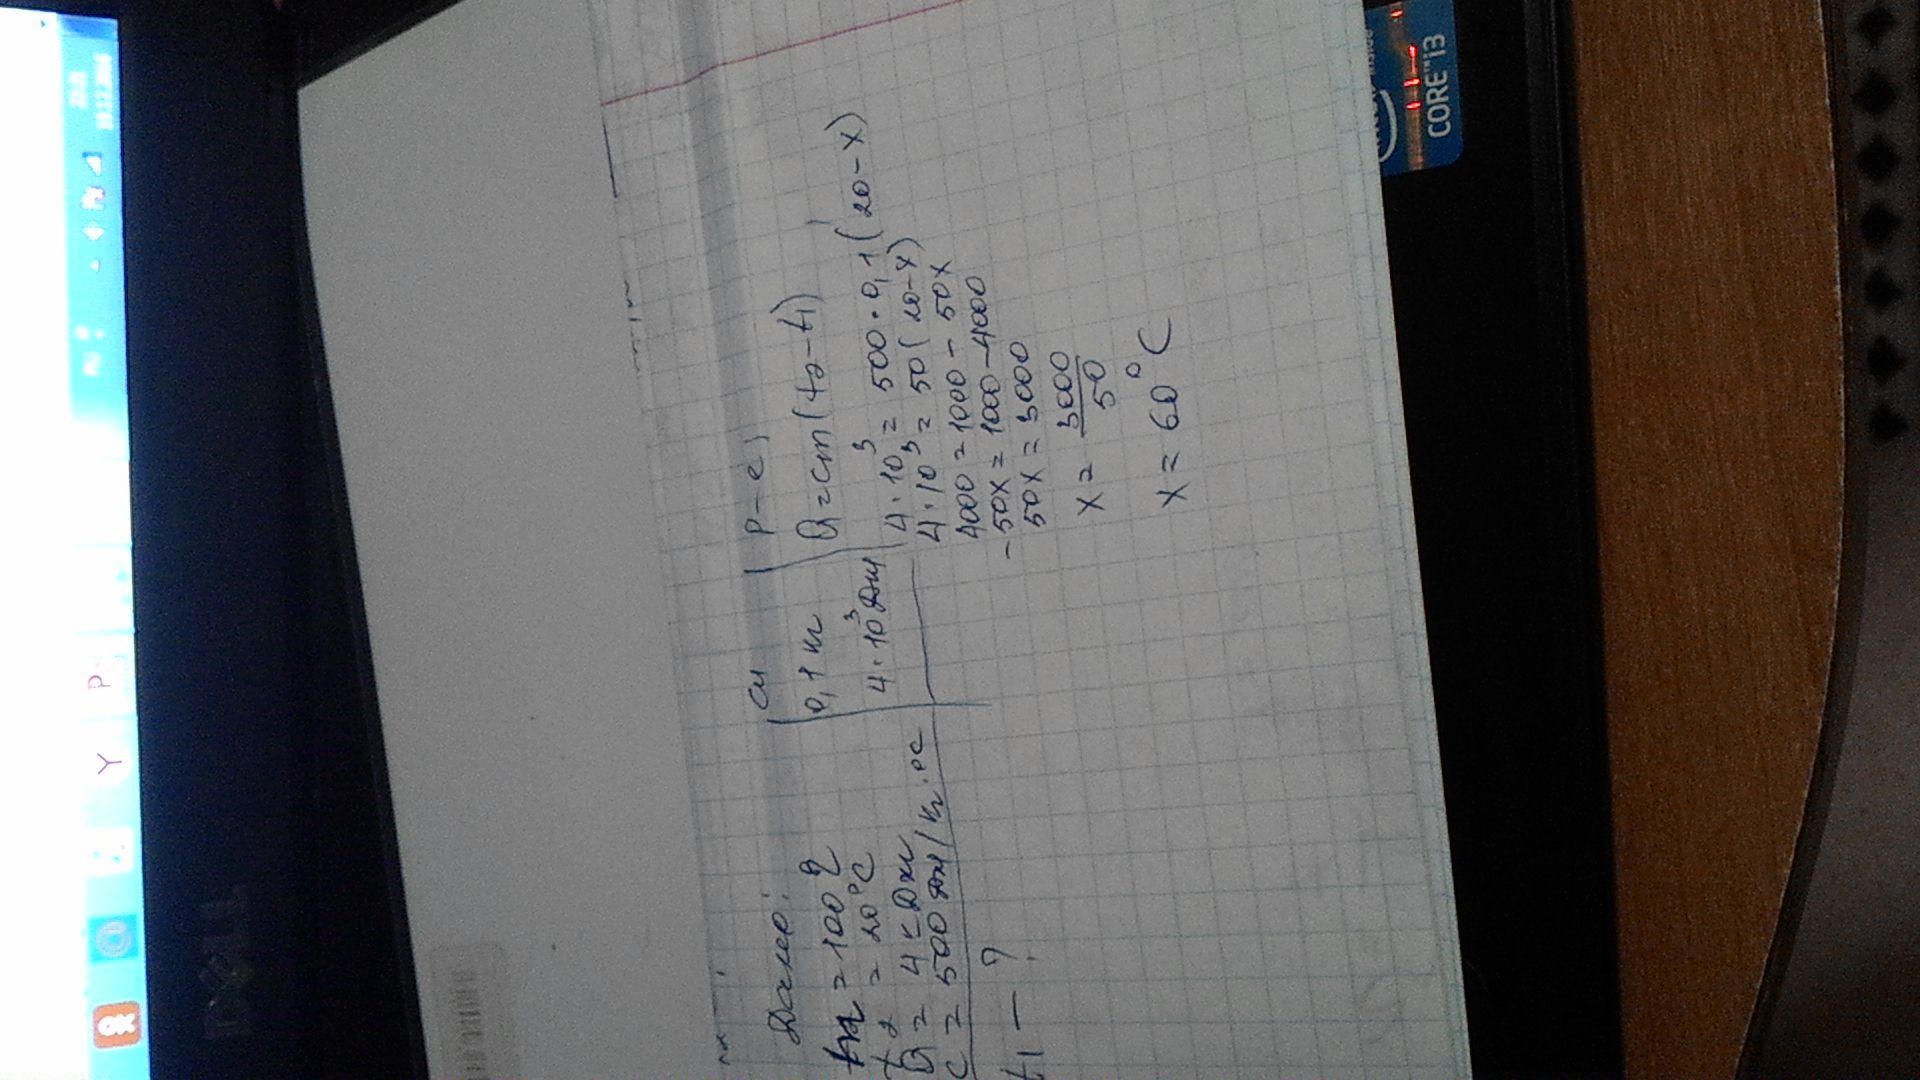 Y
P
DELL
Дано:
m = 100 г
t₂ = 20°C
Q = 4 кДж
c = 500 Дж/кг·°C
t₁ - ?
СИ
0,1 кг
4·10³ Дж
Р-е;
Q = cm(t₂-t₁)
4·10³ = 500·0,1(20-x)
4·10³ = 50(20-x)
4000 = 1000 - 50x
-50x = 1000-4000
50x = 3000
x = 3000/50
x = 60°C
inside
CORE™ i3